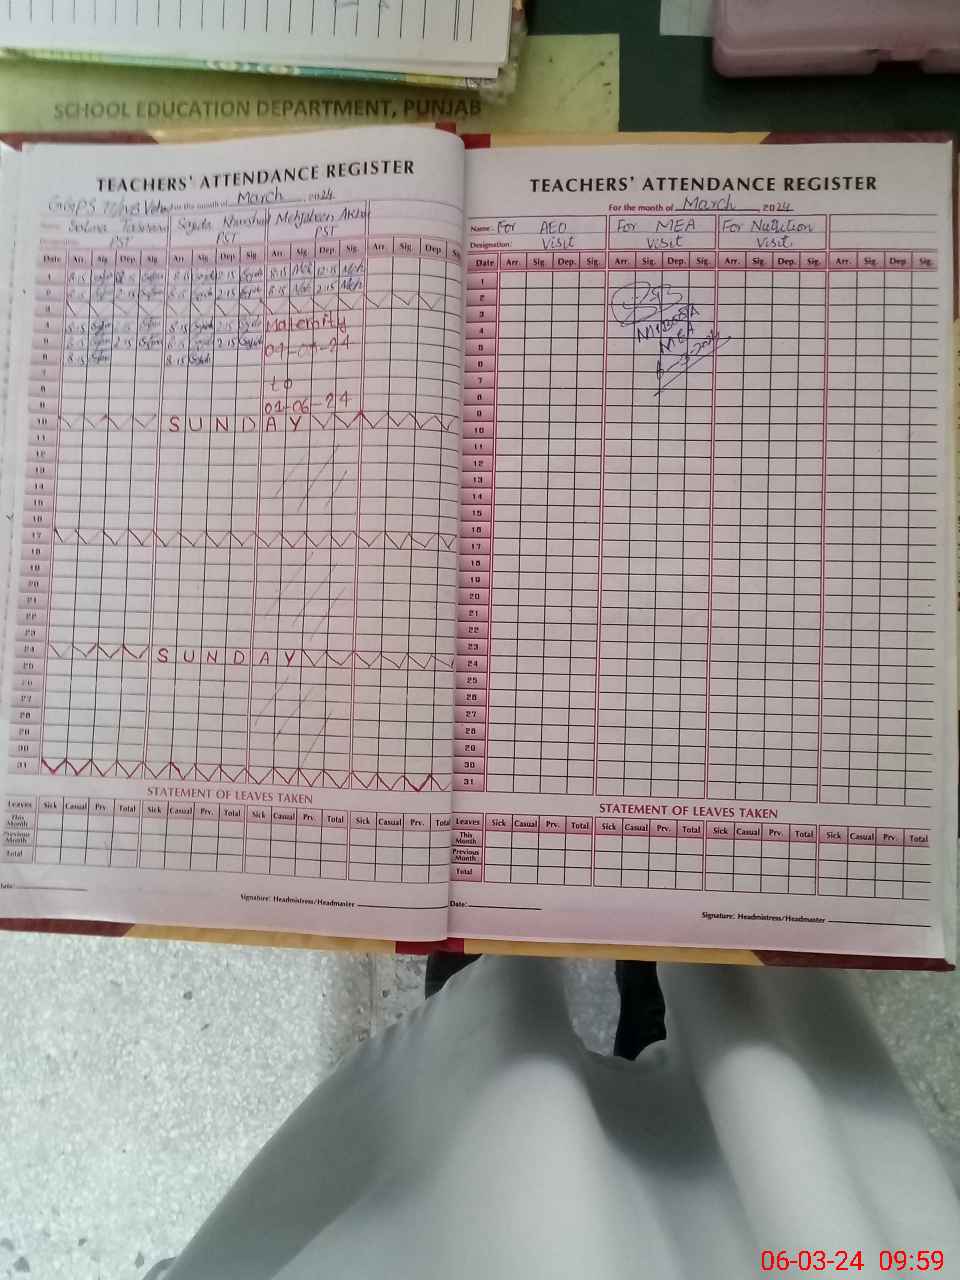 SCHOOL EDUCATION DEPARTMENT, PUNJAB
TEACHERS' ATTENDANCE REGISTER
GGPS For the month of March 2024
Name: Salma Sajida Khurshid Mehjabeen Akhtar
PST PST PST
Date Arr. Sig. Dep. Sig. Arr. Sig. Dep. Sig. Arr. Sig. Dep. Sig. Arr. Sig. Dep. Sig.
1 8:15 2:15 8:15 Sajida 2:15 Sajida 8:15 Meh 12:15 Meh
2 8:15 2:15 8:15 Sajida 2:15 Sajida 8:15 Meh 2:15 Meh
3
4 8:15 2:15 8:15 Sajida 2:15 Sajida Maternity
5 8:15 2:15 8:15 Sajida 2:15 Sajida 24
6 8:15 8:15 Sajida
7
8 to
9 01-06-24
10 SUNDAY
11
12
13
14
15
16
17
18
19
20
21
22
23
24 SUNDAY
25
26
27
28
29
30
31
STATEMENT OF LEAVES TAKEN
Leaves Sick Casual Prv. Total Sick Casual Prv. Total Sick Casual Prv. Total Sick Casual Prv. Total
This Month
Previous Month
Total
Date:
Signature: Headmistress/Headmaster
TEACHERS' ATTENDANCE REGISTER
For the month of March 2024
Name: For AEO For MEA For Nutrition
Designation: Visit Visit Visit
Date Arr. Sig. Dep. Sig. Arr. Sig. Dep. Sig. Arr. Sig. Dep. Sig. Arr. Sig. Dep. Sig.
1
2
3
4
5 MEA
6 6-3-2024
7
8
9
10
11
12
13
14
15
16
17
18
19
20
21
22
23
24
25
26
27
28
29
30
31
STATEMENT OF LEAVES TAKEN
Leaves Sick Casual Prv. Total Sick Casual Prv. Total Sick Casual Prv. Total Sick Casual Prv. Total
This Month
Previous Month
Total
Date:
Signature: Headmistress/Headmaster
06-03-24 09:59